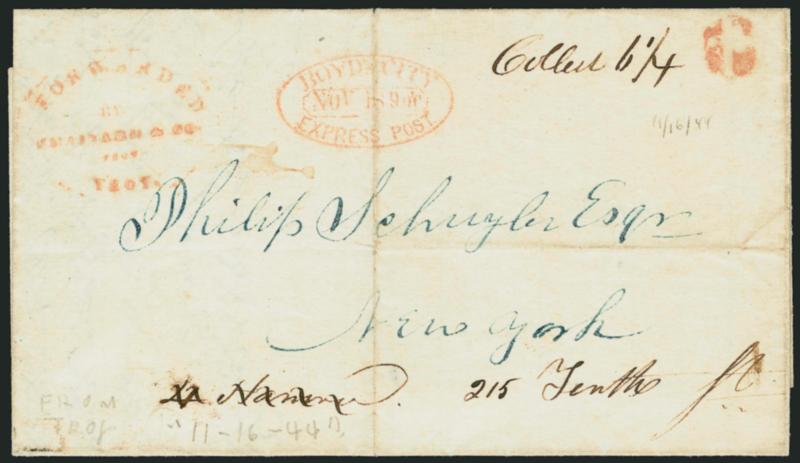 FORWARDED
BY
& CO
FROM
TROY.
BOYD'S CITY
NOV 18
EXPRESS POST.
Collect 6 1/4
6
11/16/44
Philip Schuyler Esqr
New York
215 Tenth St
FROM
TROY
"11-16-44"